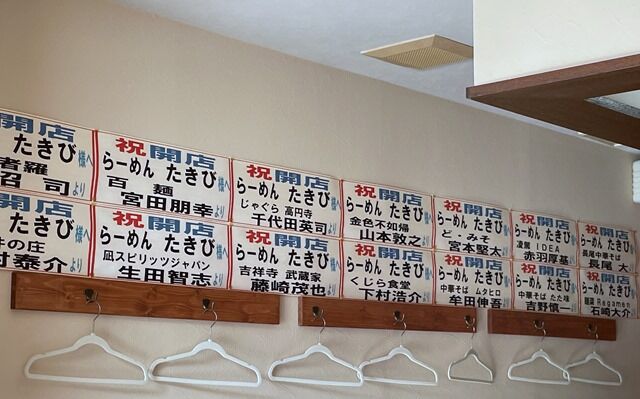 開店
たきび様へ
者羅
沼 司より
祝開店
らーめん たきび様へ
百麺
宮田朋幸より
祝開店
らーめん たきび様へ
じゃぐら 高円寺
千代田英司より
祝開店
らーめん たきび様へ
金色不如帰
山本敦之より
祝開店
らーめん たきび
どっみそ
祝開店
らーめん たきび
IDEA
赤羽厚基
祝開店
らーめん たきび
長尾中華そば
長尾 大
開店
たきび様へ
の庄
村泰介より
祝開店
らーめん たきび様へ
凪スピリッツジャパン
生田智志より
祝開店
らーめん たきび様へ
吉祥寺 武蔵家
藤崎茂也より
祝開店
らーめん たきび様へ
くじら食堂
下村浩介より
祝開店
らーめん たきび
中華そば ムタヒロ
牟田伸吾
祝開店
らーめん たきび
中華そば たた味
吉野慎一
祝開店
らーめん たきび
Ragamen
石崎大介